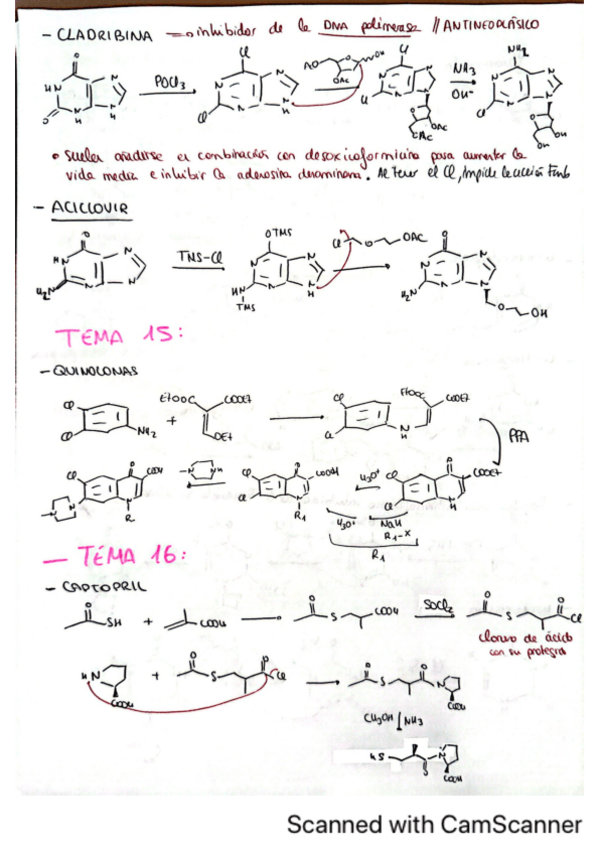 - CLADRIBINA → inhibidor de la DNA polimerasa // ANTINEOPLÁSICO
POCl3
AcO
OAc
NH3
OH-
NH2
• Suelen añadirse en combinación con desoxicoformicina para aumentar la
vida media e inhibir la adenosita desaminasa. Al tener el Cl, impide la acción
- ACICLOVIR
TMS-Cl
OTMS
HN
TMS
Cl O OAc
H2N
OH
TEMA 15:
- QUINOLONAS
EtOOC COOEt
NH2 + OEt
EtOOC COOEt
PPA
COOH
COOH
H3O+
COOEt
H3O+ NaH
R1-X
R1
- TEMA 16:
- CAPTOPRIL
SH + COOH
S COOH
SOCl2
S Cl
cloruro de ácido
con su protegido
HN + S Cl
COOH
CH3OH NH3
HS
COOH
Scanned with CamScanner